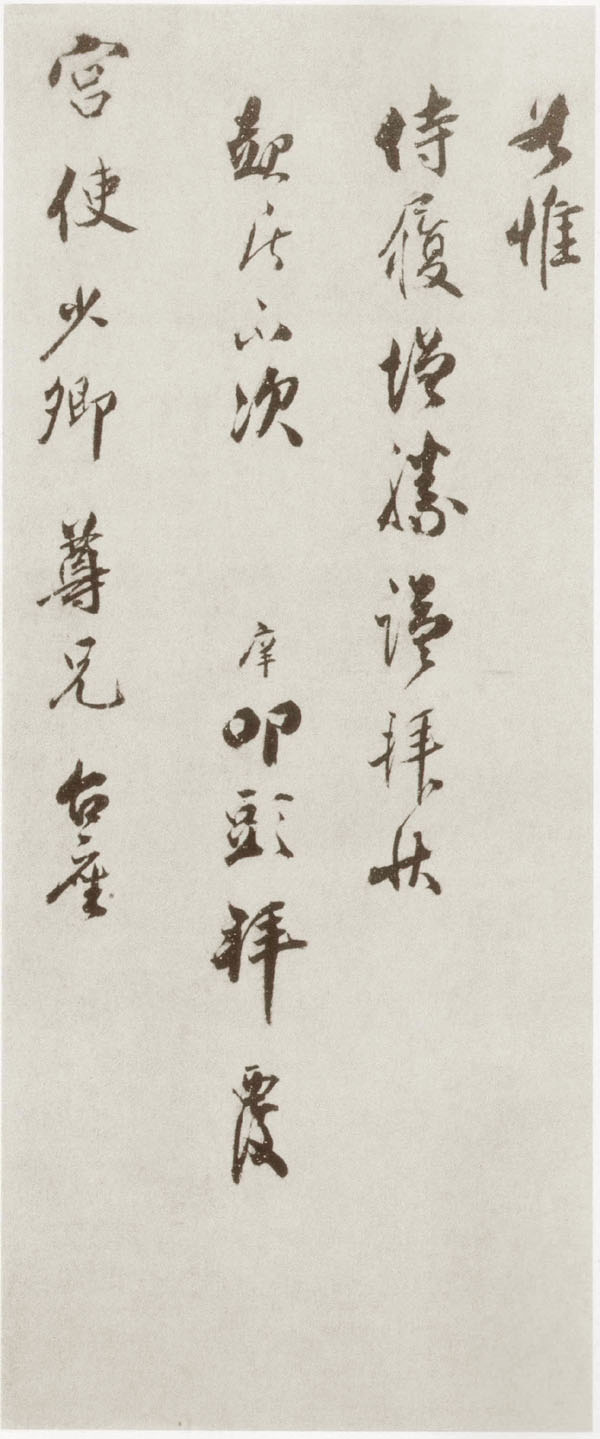 共惟
侍履增勝謹拜狀
起居不次
庠叩頭拜覆
宮使少卿尊兄台座